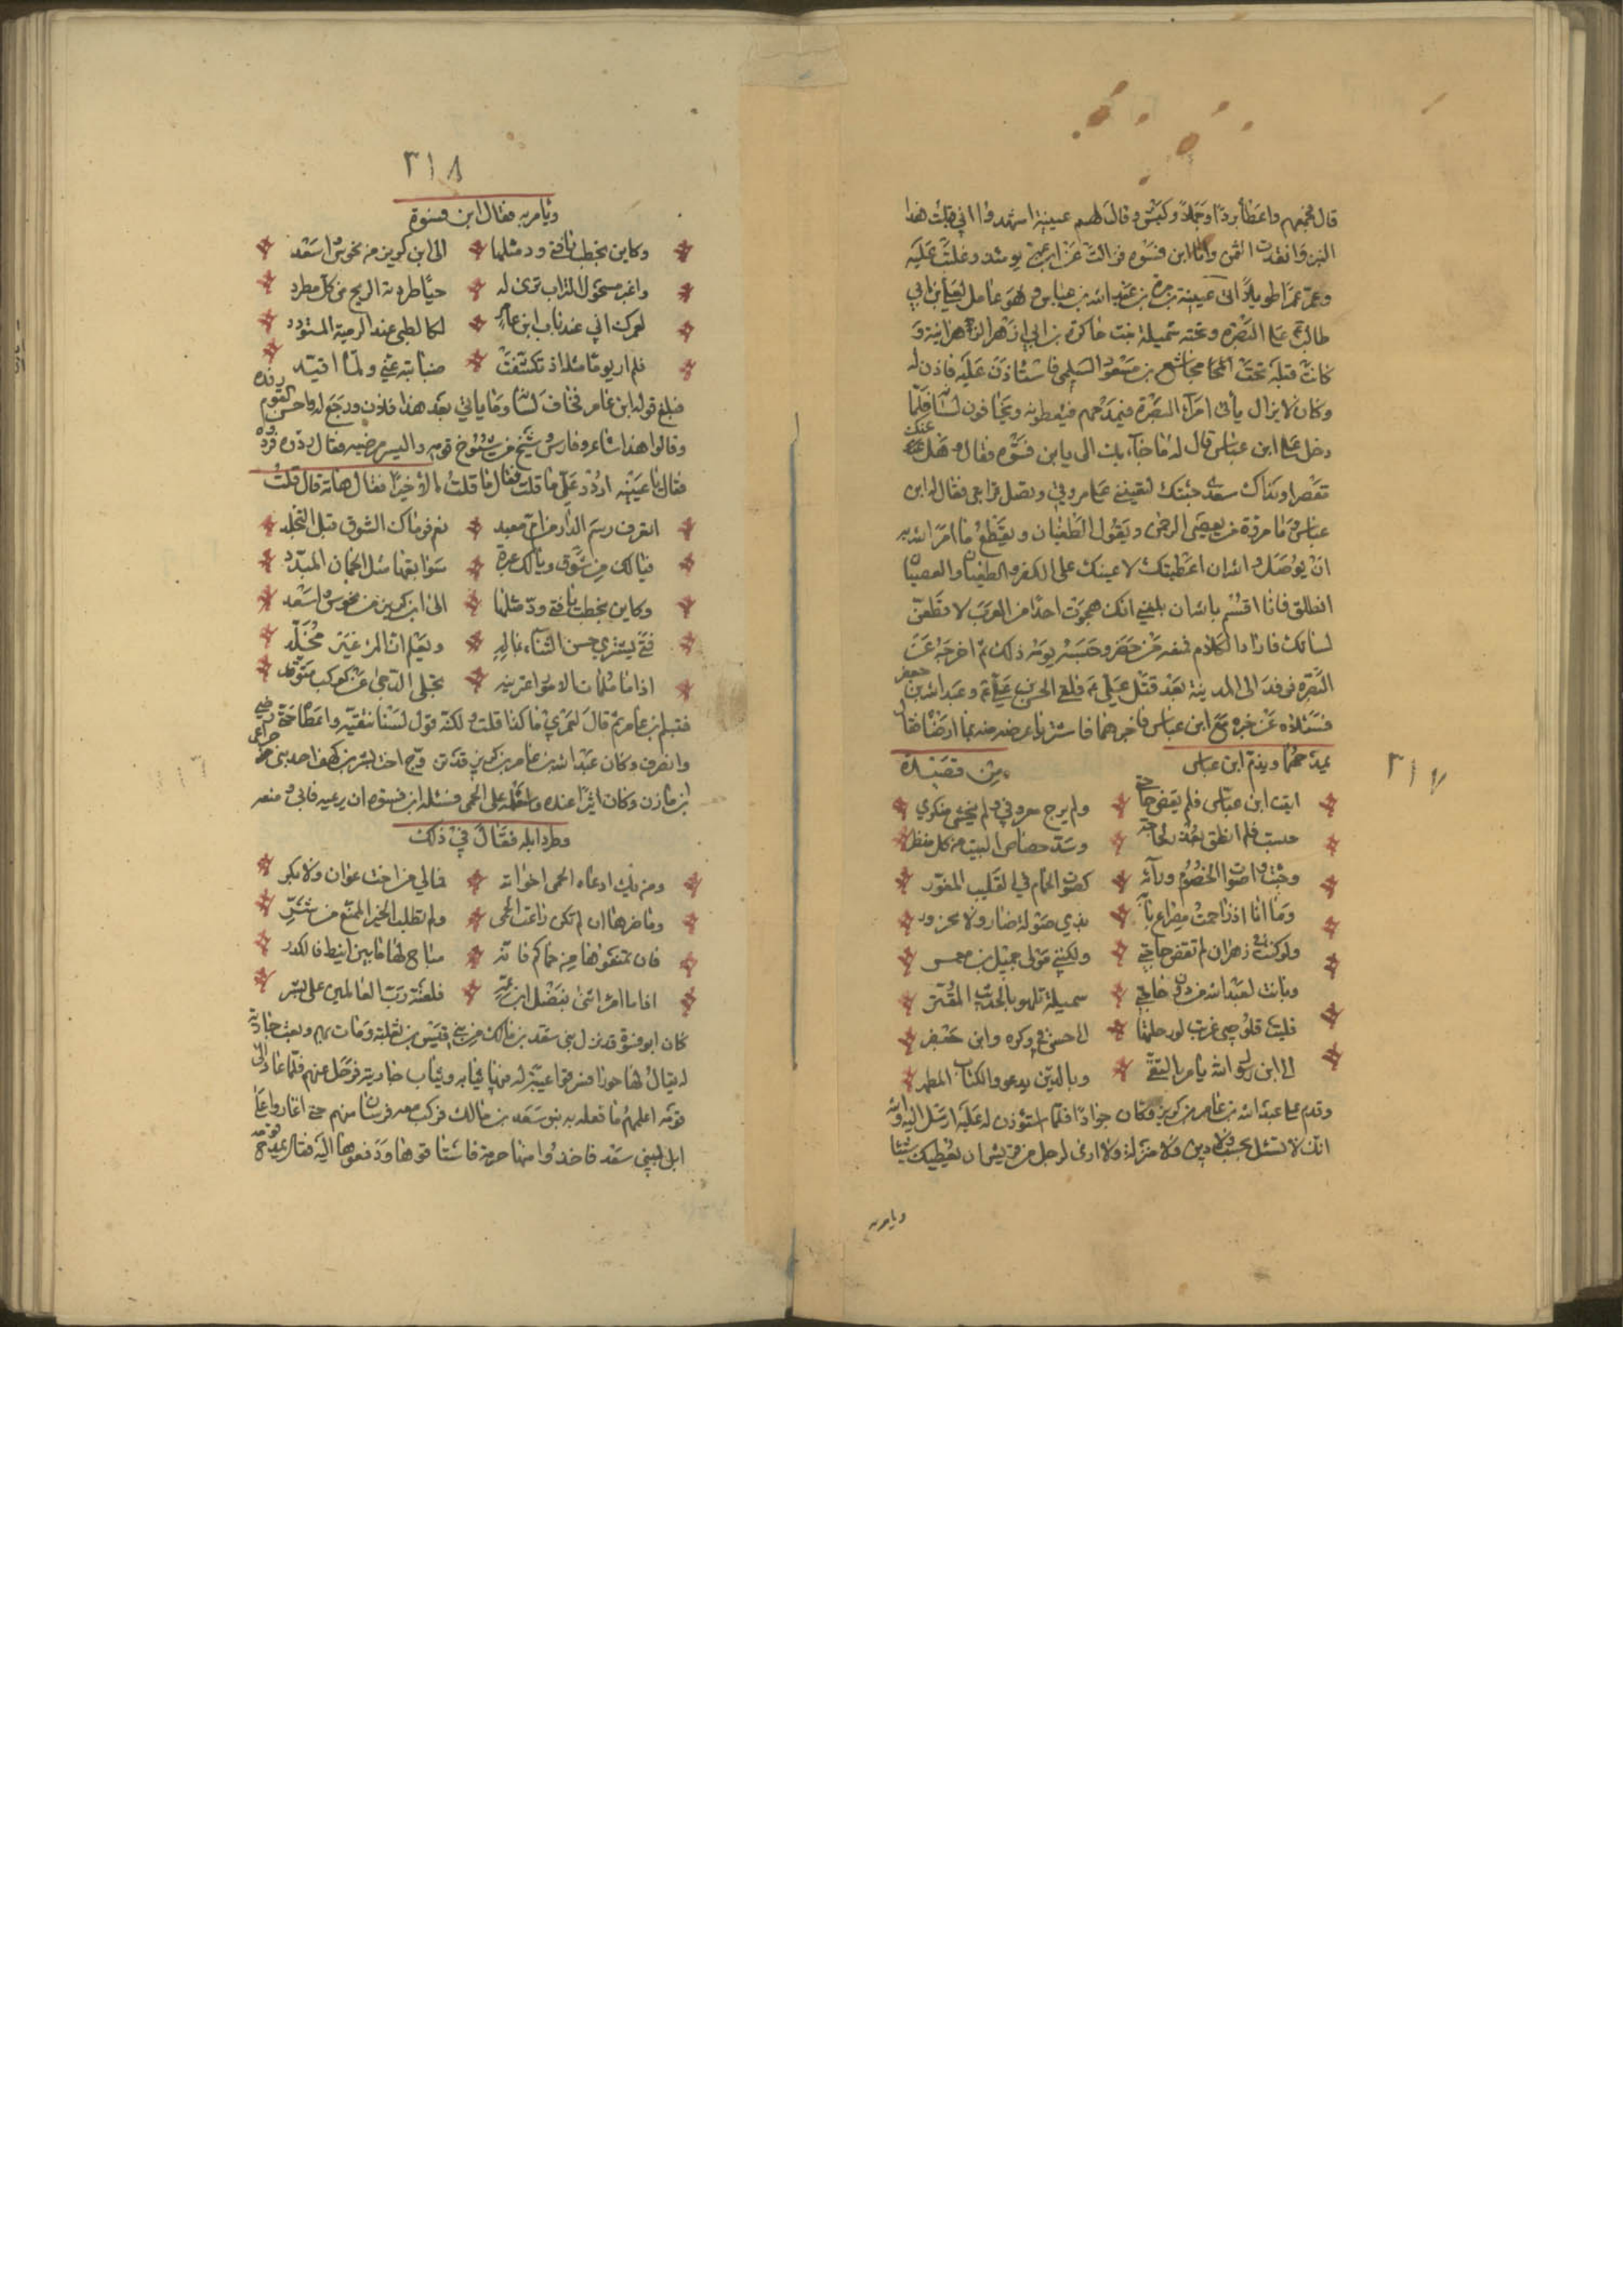 قال فجمعهم واعطا بردا وجملا وكبش وقال لهم عيينة اشهدوا اني قبلت هذا
وانقدت الثمن وانا ابن فسوة فزالت عن ابن عمه يومئذ وغلبت عليه
وعمر عمرا طويلا اتى عيينة بن مرة بن عبد الله بن عباس وهو عامل لعلي بن ابي
طالب على البصرة وتحته شميلة بنت جنادة بن ابي ازهر الزهرانية و
كانت قبله تحت مجاشع بن مسعود السلمي فاستاذن عليه فاذن له
وكان لا يزال يأتي امرآء البصرة فيمدحهم فيعطونه ويخافون لسانه فلما
دخل على ابن عباس قال له ما جاء بك الى يا ابن فسوة فقال وهل عنك
مقصر او وراك معدى جئتك لتعينني على مروتي وتصل قرابتي فقال له ابن
عباس وما مروة من يعصي الرحمن ويقول الطغيان ويقطع ما امر الله به
ان يوصل والله ان اعطيتك لاعينك على الكفر والطغيان والعصيان
انطلق فانا اقسم بالله ان بلغني انك هجوت احدا من العرب لاقطعن
لسانك فاراد الكلام فمنعه من حضر وحبسه يومه ذلك ثم اخرجه عن
البصرة فوفد الى المدينة بعد قتل علي ع م فلقي الحسن بن علي ع م وعبد الله بن جعفر
فسئلاه عن خبره مع ابن عباس فاخبرهما فاشتريا عرضه منه بما ارضاه فقال
يمدحهما ويذم ابن عباس من قصيدة
اتيت ابن عباس فلم يقض حاجتي ولم يرج معروفي ولم يخش منكري
حبست فلم انطق بعذر لحاجة وسد خصاص البيت من كل منظر
وجئت واصوات الخصوم ورآئه كصوت الحمام في القليب المغور
وما انا اذ زاحمت مصراع بابه بذي صولة ضار ولا بحزور
ولو كنت من زهران لم تقض حاجتي ولكنني مولى جميل بن معمر
وباتت لعبد الله من دون حاجتي شميلة تلهو بالحديث المقتر
فليت قلوصي عريت او رحلتها الى حسن في وكره وابن جعفر
الى ابن رسول الله يامر بالتقى وبالدين يدعو والكتاب المطهر
وقدم على عبد الله بن عامر بن كريز وكان جوادا فلما استؤذن له عليه ارسل اليه والله
انك لا تسئل بحسب ولا دين ولا منزلة ولا ارى لرجل من قريش ان يعطيك شيئا
ويامر به
٣١٧
٣١٨
ويامر به فقال ابن فسوة
وكاين تخطت ناقتي ود مثلها الى ابن كريز من نحوس واسعد
واغبر مسحول التراب ترى له حيا طردته الريح من كل مطرد
لعمرك اني عند باب ابن عامر لكالظبي عند الرمية المتودد
فلم ار يوما مثله اذ تكشفت ضبابته عني ولما اقيد
فبلغ قوله ابن عامر فخاف لسانه وما ياتي بعد هذا فاذن ورجع له واحسن رفده
وقالوا هذا شاعر وفارس وشيخ من شيوخ قومه واليسير يرضيه فقال ردوه فردوه
فقال يا عيينه اردد علي ما قلت فقال ما قلت الا خيرا فقال هاته قال قلت
اتعرف رسم الدار من ام معبد نعم فرماك الشوق قبل التجلد
فيا لك من شوق ويا لك عبرة سوابقها مثل الجمان المبدد
وكاين تخطت ناقتي ود مثلها الى ابن كريز من نحوس واسعد
فتى يشتري حسن الثناء بماله ويعلم ان المرء غير مخلد
اذا ما ملمات الامور اعترينه تجلى الدجى عن كوكب متوقد
فتبسم ابن عامر ثم قال لعمري ما كذا قلت ولكنه قول لسنا ننقيه واعطاه حتى رضي
وانصرف وكان عبد الله بن عامر بن كريز قد تزوج اخت بشر بن كهف احد بني خزاعي
بن مازن وكان اثيرا عنده واستعمله على الحمى فسئله ابن فسوه ان يرعيه فابى ومنعه
وطرد ابله فقال في ذلك
ومن يك ادعاه الحمى اخواته فمالي من اخت عوان ولا بكر
وما ضرها ان لم تكن راعت الحمى ولم تطلب الخير الممنع من بشر
فان تمنعوا منها حماكم فانه مباح لها ما بين انبط فالكدر
اذا ما امرؤ اثنى بفضل ابن عمه فلعنة رب العالمين على بشر
كان ابو فسوة قد نزل ببني سعد بن مالك من بني قيس بن ثعلبة وبات بهم ومعه جارية
له يقال لها جوزا فسرقوا عيبة له فيها ثيابه وثياب جاريته فرحل عنهم فلما عاد الى
قومه اعلمهم ما فعله به بنو سعد بن مالك فركب معه فرسان منهم حتى اغاروا على
ابل لبني سعد فاخذوا منها صرمة فاستاقوها ودفعوها اليه فقال يمدح قومه